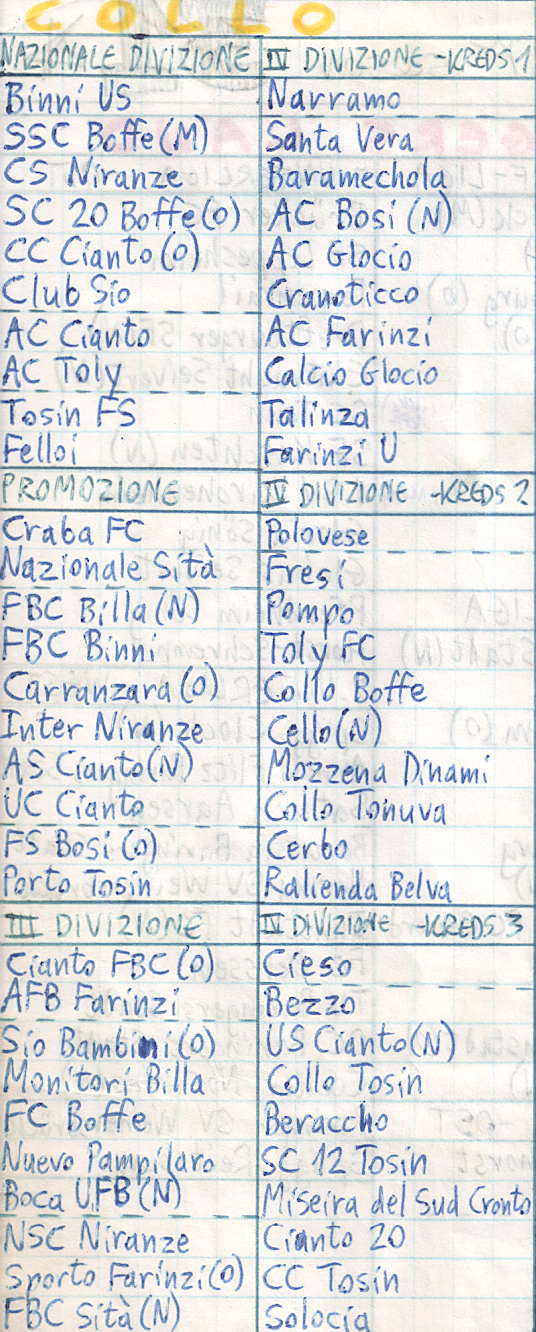 COLLO
NAZIONALE DIVIZIONE
Binni US
SSC Boffe (M)
CS Niranze
SC 20 Boffe (O)
CC Cianto (O)
Club Sio
AC Cianto
AC Toly
Tosin FS
Felloi
PROMOZIONE
Craba FC
Nazionale Sità
FBC Billa (N)
FBC Binni
Carranzara (O)
Inter Niranze
AS Cianto (N)
UC Cianto
FS Bosi (O)
Porto Tosin
III DIVIZIONE
Cianto FBC (O)
AFB Farinzi
Sio Bambini (O)
Monitori Billa
FC Boffe
Nuevo Pampilaro
Boca UFB (N)
NSC Niranze
Sporto Farinzi (O)
FBC Sità (N)
IV DIVIZIONE -KREDS 1
Narramo
Santa Vera
Baramechola
AC Bosi (N)
AC Glocio
Cranoticco
AC Farinzi
Calcio Glocio
Talinza
Farinzi U
IV DIVIZIONE -KREDS 2
Polovese
Fresi
Pompo
Toly FC
Collo Boffe
Cello (N)
Mozzena Dinami
Collo Tonuva
Cerbo
Ralienda Belva
IV DIVIZIONE -KREDS 3
Cieso
Bezzo
US Cianto (N)
Collo Tosin
Beraccho
SC 12 Tosin
Miseira del Sud Cronto
Cianto 20
CC Tosin
Solocia